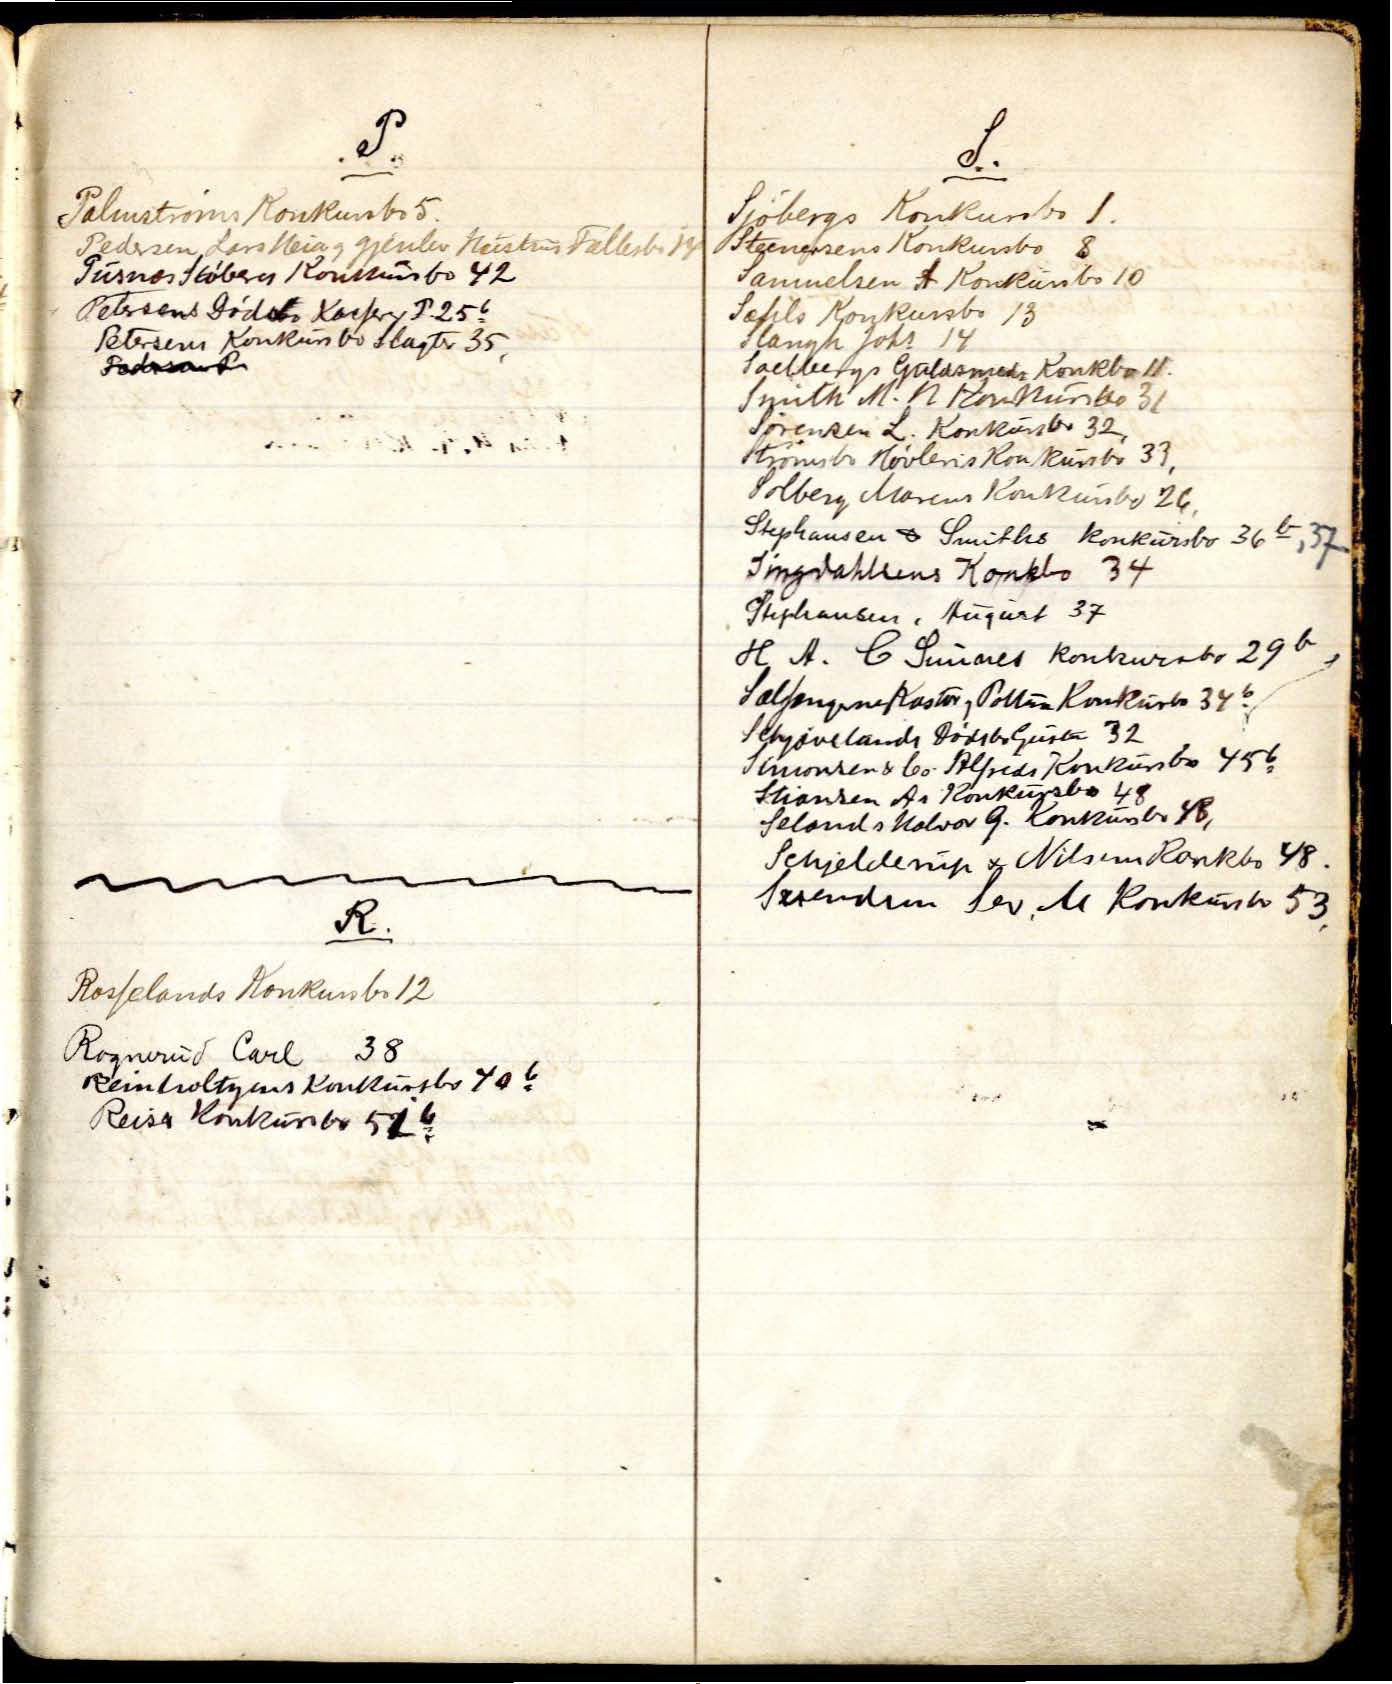 P.
Palmströms Konkursbo 5.
Pedersen, Lars Heia og gjenlev Hustrus Fællesbo
Pusnæs Støberis Konkursbo 42
Petersens Dødsbo Kasper P. 25 b
Petersens Konkursbo Slagter 35,
R.
Rosselands Konkursbo 12
Rognerud Carl 38
Reinholtzens Konkursbo 40 b
Reiss Konkursbo 51 b
S.
Sjöbergs Konkursbo 1.
Steenersens Konkursbo 8
Samuelsen A Konkursbo 10
Konkursbo 13
Stangh Johs 14
Guldsmeds Konkbo 11.
Smith M. N Konkursbo 31
Sørensen L. Konkursbo 32,
Strømsbo Høvleris Konkursbo 33,
Solberg Marcus Konkursbo 26,
Stephansen & Smiths Konkursbo 36 b, 37
Singdahlsens Konkbo 34
Stephansen, August 37
H A. C Konkursbo 29 b
Sælfangerne Kastor og Pollux Konkursbo 34 b
Dødsbo 32
Simonsen & Co. Alfreds Konkursbo 45 b
Stiansen As Konkursbo 48
Selands Halvor G. Konkursbo 48,
Schjelderup & Nilsens Konkbo 48.
Svendsen Sev. M Konkursbo 53,